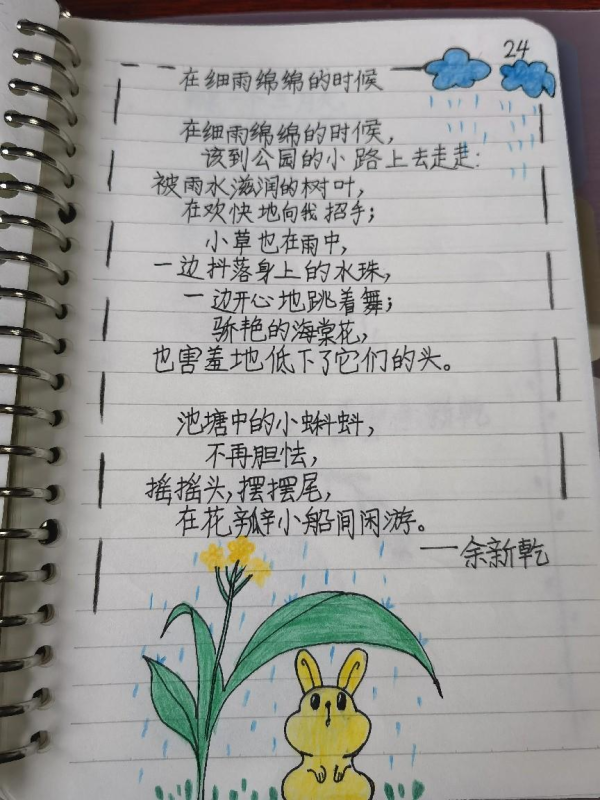 24
在细雨绵绵的时候
在细雨绵绵的时候,
该到公园的小路上去走走:
被雨水滋润的树叶,
在欢快地向我招手;
小草也在雨中,
一边抖落身上的水珠,
一边开心地跳着舞;
骄艳的海棠花,
也害羞地低下了它们的头。
池塘中的小蝌蚪,
不再胆怯,
摇摇头,摆摆尾,
在花瓣小船间闲游。
——余新乾